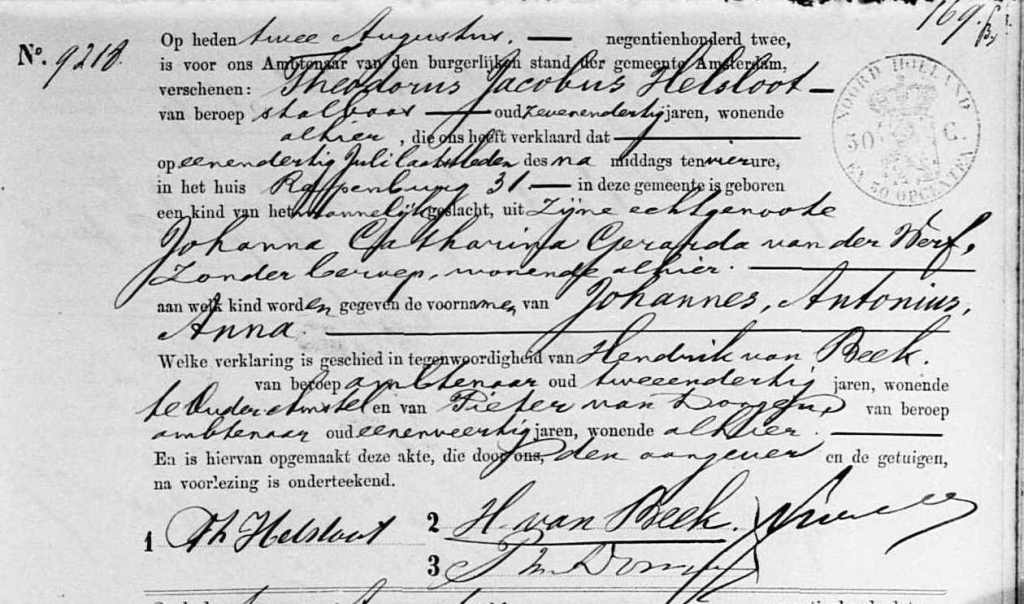 169.
Nº. 9218.
Op heden twee Augustus. — negentienhonderd twee,
is voor ons Ambtenaar van den burgerlijken stand der gemeente Amsterdam,
verschenen: Theodorus Jacobus Helsloot —
van beroep stalbaas — oud zevenendertig jaren, wonende
alhier, die ons heeft verklaard dat —
op eenendertig Juli laatstleden des na middags ten vier ure,
in het huis Rapenburg 31 — in deze gemeente is geboren
een kind van het mannelijk geslacht, uit zijne echtgenoote
Johanna Catharina Gerarda van der Werf,
zonder beroep, wonende alhier. —
aan welk kind worden gegeven de voornamen van Johannes, Antonius,
Anna. —
Welke verklaring is geschied in tegenwoordigheid van Hendrik van Beek.
van beroep ambtenaar oud tweeendertig jaren, wonende
te Ouder-Amstel en van Pieter van van beroep
ambtenaar oud eenenveertig jaren, wonende alhier. —
En is hiervan opgemaakt deze akte, die door ons, den aangever en de getuigen,
na voorlezing is onderteekend.
1 Th Helsloot
2 H. van Beek.
3
NOORD HOLLAND
50 C.
EN 50 OPCENTEN